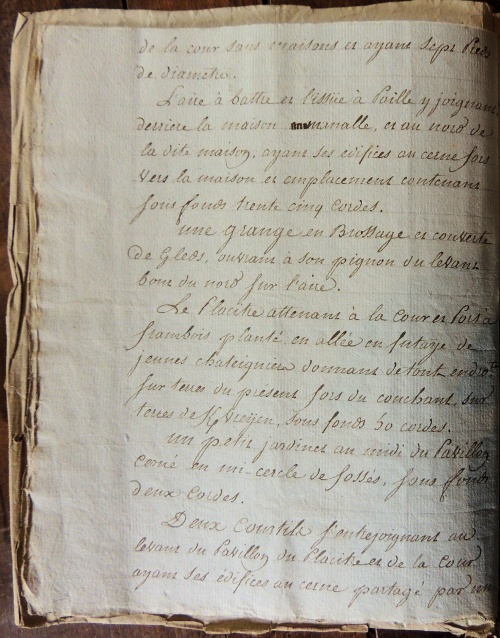 de la cour sans maisons et ayant sept Pieds
de diametre.
L'aire à battre et l'issüe à Paille y joignant,
derriere la maison manalle, et au nord de
la dite maison, ayant ses édifices au cerne fors
vers la maison et emplacement contenant
sous fonds trente cinq cordes.
une grange en Brossage et couverte
de Gleds, ouvrant à son pignon du levant
bout du nord sur l'aire.
Le Placitre attenant à la cour et Port à
frambois planté en allée en futaye de
jeunes chateigniers donnant de tout endroit
sur terres du present fors du couchant, sur
terres de sous fonds 50 cordes.
un petit jardinet au midi du Pavillon
cerné en mi-cercle de fossés, sous fonds
deux cordes.
Deux Courtils s'entrejoignant au
levant du Pavillon du Placitre et de la Cour,
ayant ses édifices au cerne partagé par un